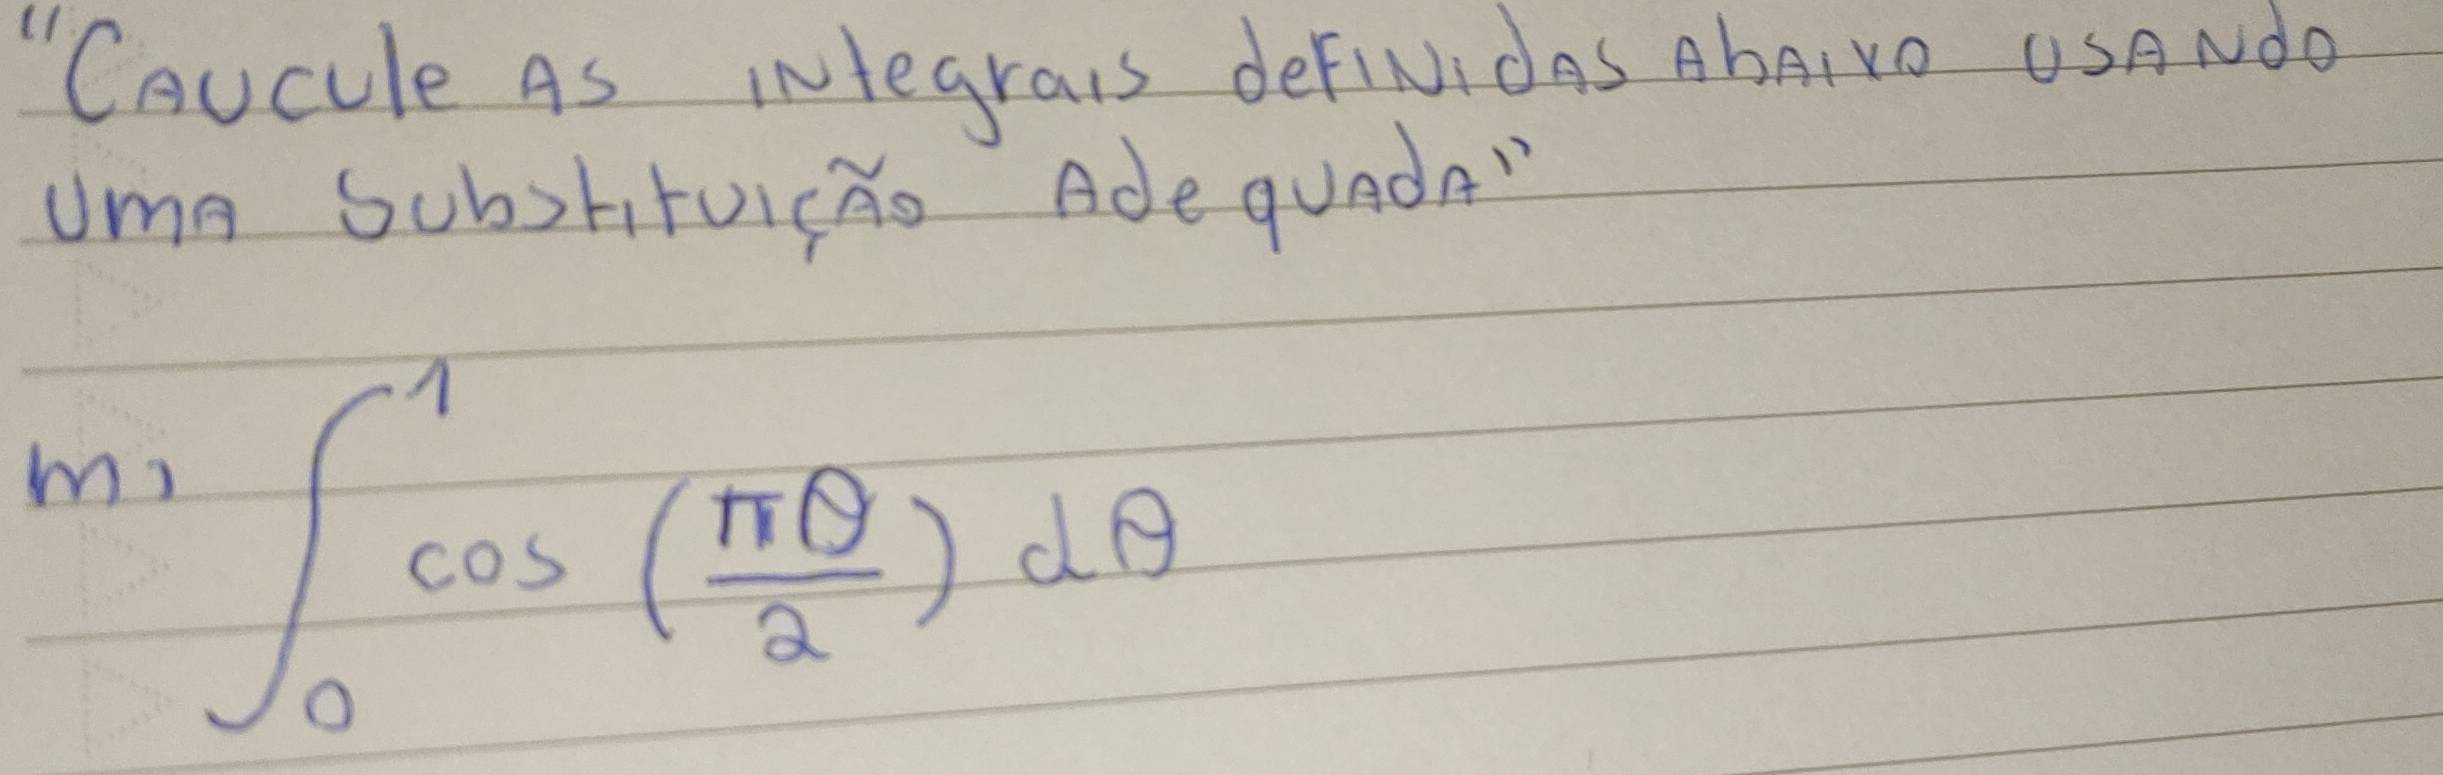 "CAUCULE AS INTEGRAIS DEFINIDAS ABAIXO USANDO
UMA SUBSTITUIÇÃO ADEQUADA"
m) ∫₀¹ cos (πθ/2) dθ